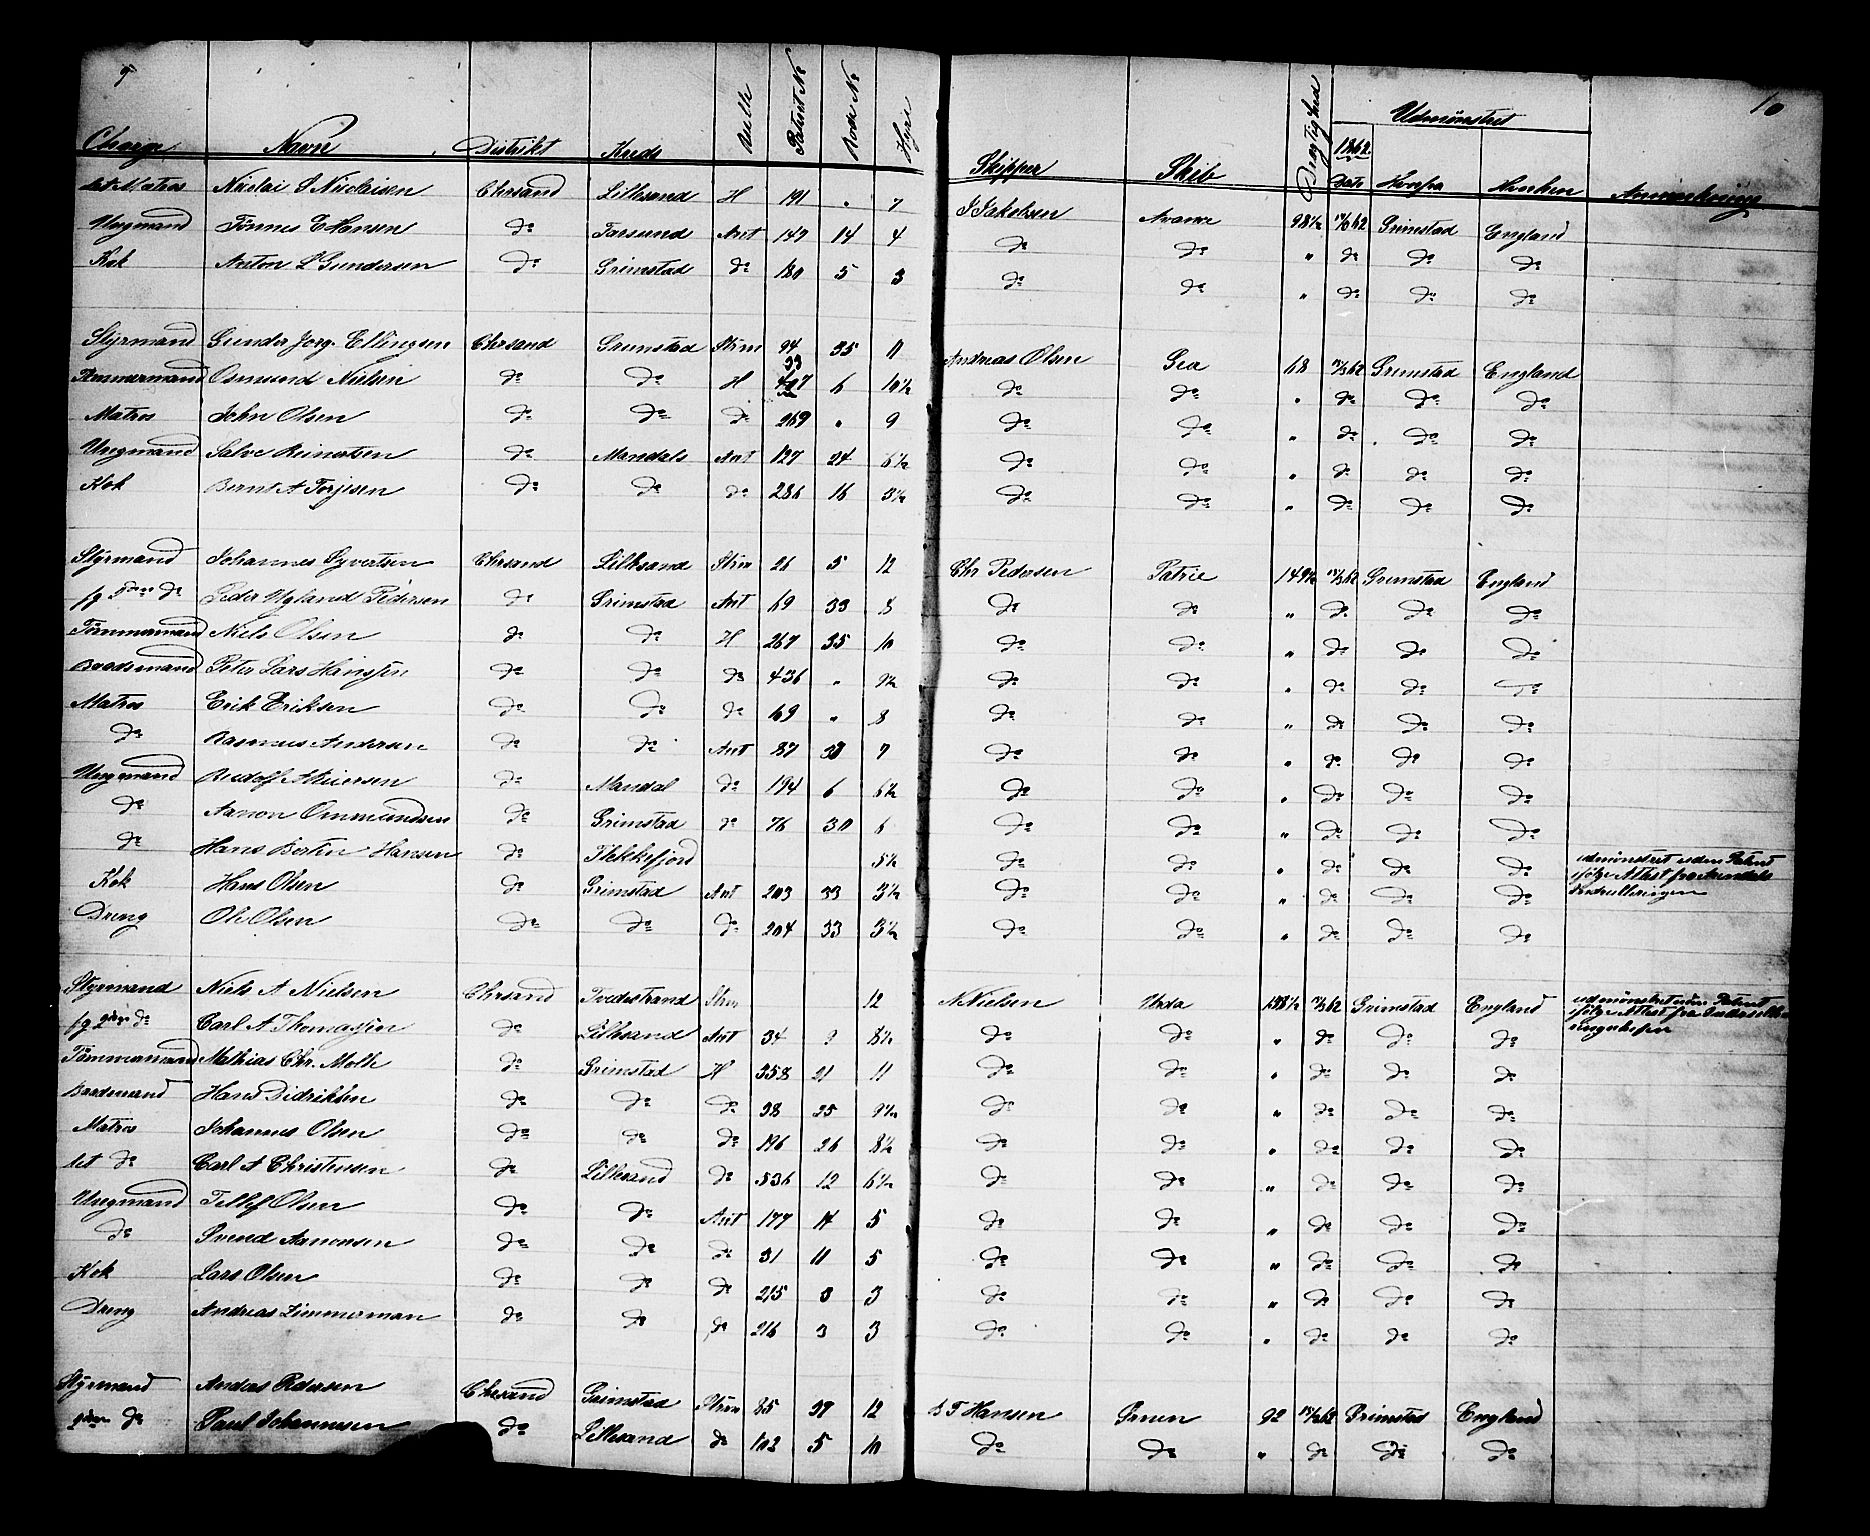 9
10
Charge Navn Distrikt Kreds Rulle Patent No Rolle No Hyre Skipper Skib Drægtighed Udmønstret Anmærkning
1862
Dato Hvorfra Hvorhen
let Matros Nicolai S Nicolaisen Chrsand Lillesand H 191 " 7 J Jakobsen Avance 98½ 62 Grimstad England
Ungmand Tönnes E Hansen do Farsund Ant 147 14 4 do do " do do do
Kok Anton L Gundersen do Grimstad do 180 5 3 do do " do do do
Styrmand Gunder Jorg. Ellingsen Chrsand Grimstad Strm 94 35 11 Andreas Olsen Gea 68 62 Grimstad England
Tömmermand Osmund Nielsen do do H 6 10½ do do " do do do
Matros John Olsen do do do 269 " 9 do do " do do do
Ungmand Salve Reinertsen do Mandals Ant 127 24 6½ do do " do do do
Kok Bernt A Torjesen do do do 286 16 3½ do do " do do do
Styrmand Johannes Syvertsen Chrsand Lillesand Strm 26 5 12 Chr Pedersen Patrie 149½ 62 Grimstad England
fg do Peder Ugland Pedersen do Grimstad Ant 69 33 8 do do " do do do
Tömmermand Niels Olsen do do H 267 35 10 do do " do do do
Baadsmand Peter Lars Hansen do do do 436 " 9½ do do " do do do
Matros Erik Eriksen do do do 169 " 8 do do " do do do
do Rasmus Andersen do do Ant 87 33 7 do do " do do do
Ungmand Rudolf Andersen do Mandal do 194 6 6½ do do " do do do
do Aanon Ommundsen do Grimstad do 76 30 6 do do " do do do
do Hans Bertin Hansen do Flekkefjord 5½ do do " do do do udmönstret uden Patent
ifölge Attest fra Arendals
Indrulleringen
Kok Hans Olsen do Grimstad Ant 203 33 3½ do do " do do do
Dreng Ole Olsen do do do 204 33 3½ do do " do do do
Styrmand Niels A Nielsen Chrsand Tvedestrand Strm 12 N Nielsen 138½ 62 Grimstad England udmönstret uden Patent
ifölge Attest fra
fg do Carl A Thomassen do Lillesand Ant 34 8½ do do " do do do
Tömmermand Mathias Chr. Molle do Grimstad H 358 21 11 do do " do do do
Baadsmand Hans Didriksen do do do 38 25 9½ do do " do do do
Matros Johannes Olsen do do do 196 26 8½ do do " do do do
let do Carl A Christensen do Lillesand do 536 12 6½ do do " do do do
Ungmand Tellef Olsen do do Ant 177 14 5 do do " do do do
do Svend Aanonsen do do do 31 11 5 do do " do do do
Kok Lars Olsen do do do 215 3 3 do do " do do do
Dreng Andreas Zimmerman do do do 216 3 3 do do " do do do
Styrmand Andreas Pedersen Chrsand Grimstad Strm 85 37 12 B T Hansen Ørnen 92 62 Grimstad England
do Paul Johannesen do Lillesand do 102 5 10 do do " do do do